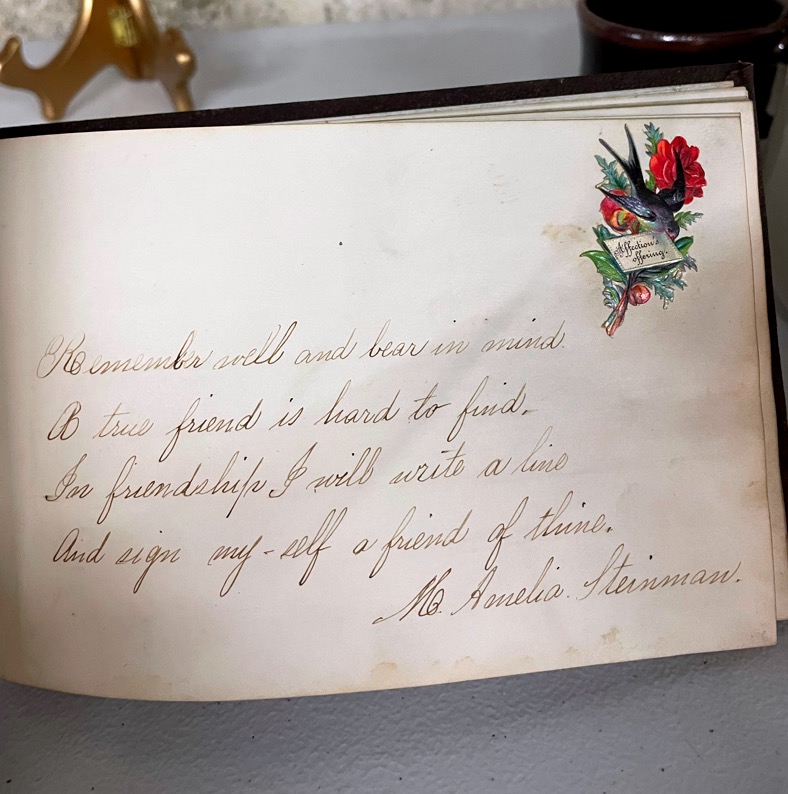 Affection's
offering.
Remember well and bear in mind.
A true friend is hard to find.
In friendship I will write a line
And sign my-self a friend of thine.
M. Amelia. Steinman.